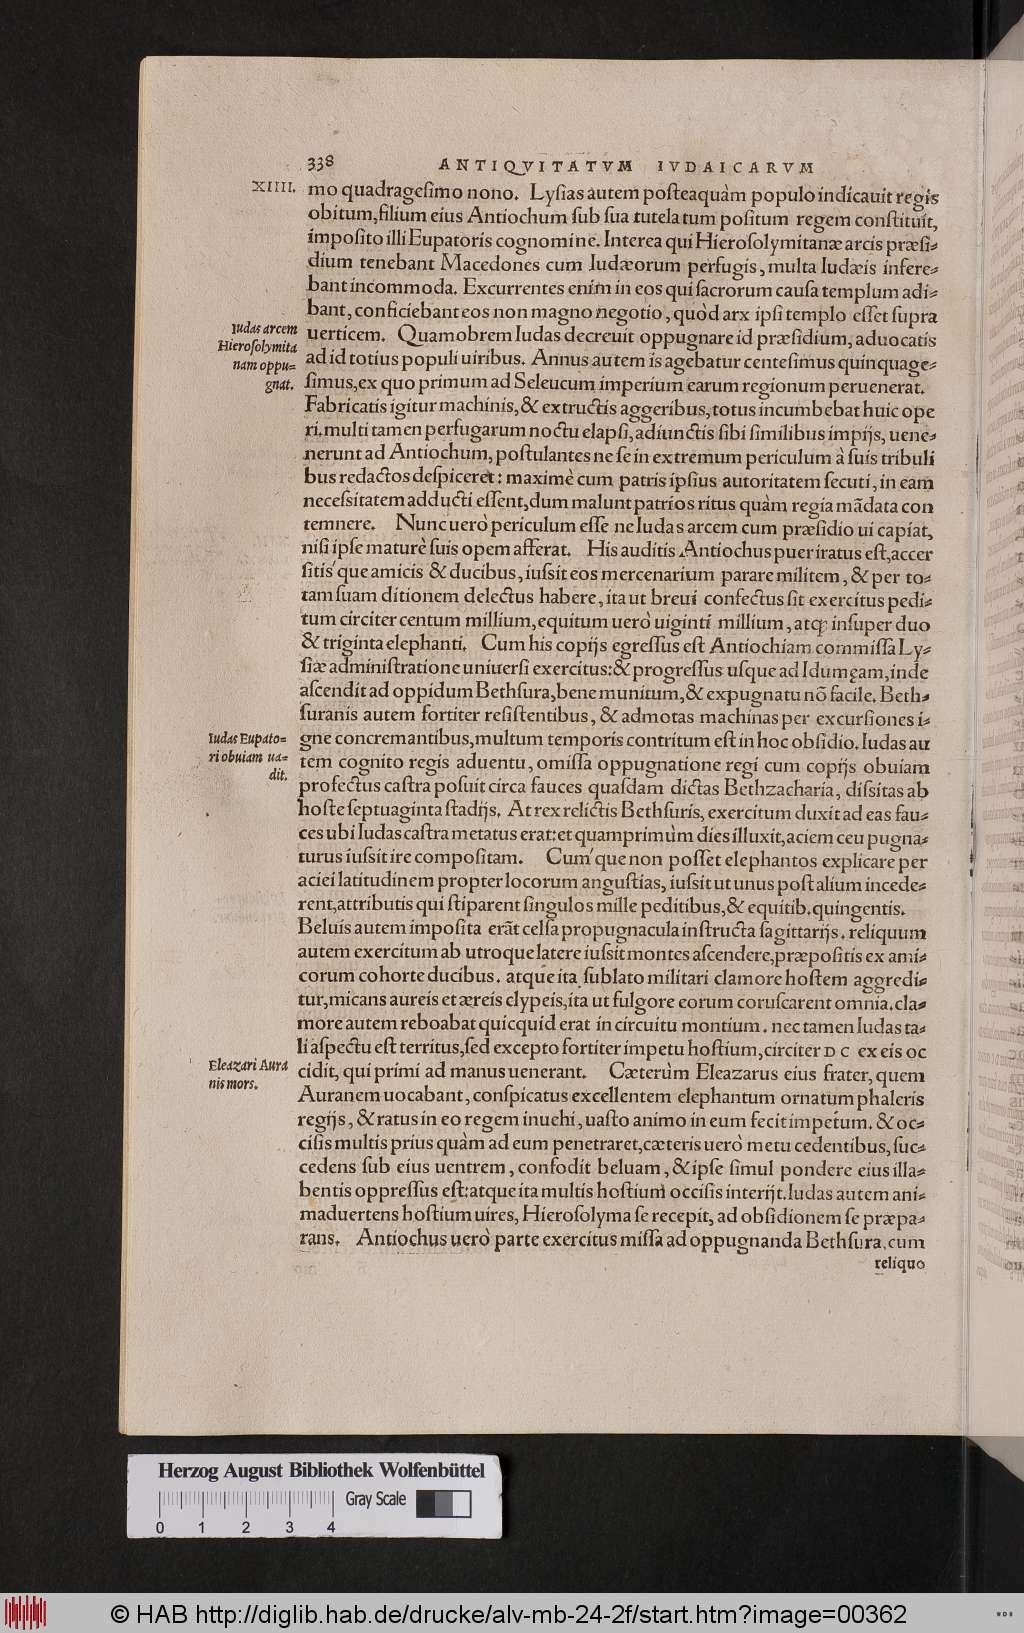 338 ANTIQVITATVM IVDAICARVM
XIIII. mo quadrageſimo nono. Lyſias autem poſteaquàm populo indicauit regis
obitum, filium eius Antiochum ſub ſua tutela tum poſitum regem conſtituit,
impoſito illi Eupatoris cognomine. Interea qui Hieroſolymitanæ arcis præſi-
dium tenebant Macedones cum Iudæorum perfugis, multa Iudæis infere-
bant incommoda. Excurrentes enim in eos qui ſacrorum cauſa templum adi-
bant, conficiebant eos non magno negotio, quòd arx ipſi templo eſſet ſupra
Iudas arcem
Hieroſolymita
nam oppu-
gnat.
uerticem. Quamobrem Iudas decreuit oppugnare id præſidium, aduocatis
ad id totius populi uiribus. Annus autem is agebatur centeſimus quinquage-
ſimus, ex quo primum ad Seleucum imperium earum regionum peruenerat.
Fabricatis igitur machinis, & extructis aggeribus, totus incumbebat huic ope
ri. multi tamen perfugarum noctu elapſi, adiunctis ſibi ſimilibus impijs, uene-
nerunt ad Antiochum, poſtulantes ne ſe in extremum periculum à ſuis tribuli
bus redactos deſpiceret: maximè cum patris ipſius autoritatem ſecuti, in eam
neceſsitatem adducti eſſent, dum malunt patrios ritus quàm regia mãdata con
temnere. Nunc uerò periculum eſſe ne Iudas arcem cum præſidio ui capiat,
niſi ipſe maturè ſuis opem afferat. His auditis Antiochus puer iratus eſt, accer
ſitiśque amicis & ducibus, iuſsit eos mercenarium parare militem, & per to-
tam ſuam ditionem delectus habere, ita ut breui confectus ſit exercitus pedi-
tum circiter centum millium, equitum uerò uiginti millium, atq; inſuper duo
& triginta elephanti. Cum his copijs egreſſus eſt Antiochiam commiſſa Ly-
ſiæ adminiſtratione uniuerſi exercitus: & progreſſus uſque ad Idumęam, inde
aſcendit ad oppidum Bethſura, bene munitum, & expugnatu nõ facile. Beth-
ſuranis autem fortiter reſiſtentibus, & admotas machinas per excurſiones i-
Iudas Eupato-
ri obuiam ua-
dit.
gne concremantibus, multum temporis contritum eſt in hoc obſidio. Iudas au
tem cognito regis aduentu, omiſſa oppugnatione regi cum copijs obuiam
profectus caſtra poſuit circa fauces quaſdam dictas Bethzacharia, diſsitas ab
hoſte ſeptuaginta ſtadijs. At rex relictis Bethſuris, exercitum duxit ad eas fau-
ces ubi Iudas caſtra metatus erat: et quamprimùm dies illuxit, aciem ceu pugna-
turus iuſsit ire compoſitam. Cuḿque non poſſet elephantos explicare per
aciei latitudinem propter locorum anguſtias, iuſsit ut unus poſt alium incede-
rent, attributis qui ſtiparent ſingulos mille peditibus, & equitib. quingentis.
Beluis autem impoſita erãt celſa propugnacula inſtructa ſagittarijs. reliquum
autem exercitum ab utroque latere iuſsit montes aſcendere, præpoſitis ex ami-
corum cohorte ducibus. atque ita ſublato militari clamore hoſtem aggredi-
tur, micans aureis et æreis clypeis, ita ut fulgore eorum coruſcarent omnia. cla-
more autem reboabat quicquid erat in circuitu montium. nec tamen Iudas ta-
li aſpectu eſt territus, ſed excepto fortiter impetu hoſtium, circiter D C ex eis oc
Eleazari Aura
nis mors.
cidit, qui primi ad manus uenerant. Cæterùm Eleazarus eius frater, quem
Auranem uocabant, conſpicatus excellentem elephantum ornatum phaleris
regijs, & ratus in eo regem inuehi, uaſto animo in eum fecit impetum. & oc-
ciſis multis prius quàm ad eum penetraret, cæteris uerò metu cedentibus, ſuc-
cedens ſub eius uentrem, confodit beluam, & ipſe ſimul pondere eius illa-
bentis oppreſſus eſt: atque ita multis hoſtium occiſis interijt. Iudas autem ani-
maduertens hoſtium uires, Hieroſolyma ſe recepit, ad obſidionem ſe præpa-
rans. Antiochus uerò parte exercitus miſſa ad oppugnanda Bethſura, cum
reliquo
Herzog August Bibliothek Wolfenbüttel
Gray Scale
0 1 2 3 4
© HAB http://diglib.hab.de/drucke/alv-mb-24-2f/start.htm?image=00362